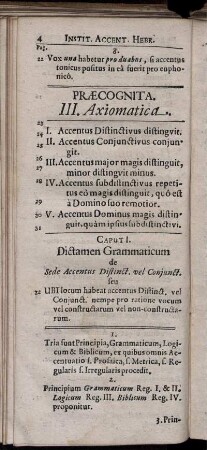 4 INSTIT. ACCENT. HEBR.
Pag.
8.
22 Vox una habetur pro duabus, si accentus
tonicus positus in eâ fuerit pro eupho-
nicô.
PRÆCOGNITA.
III. Axiomatica.
23
24 I. Accentus Distinctivus distingvit.
25 II. Accentus Conjunctivus conjun-
git.
26 III. Accentus major magis distinguit,
minor distingvit minus.
IV. Accentus subdistinctivus repeti-
tus eô magis distinguit, quô est
à Domino suo remotior.
30 V. Accentus Dominus magis distin-
guit, quàm ipsius subdistinctivi.
CAPUT I.
Dictamen Grammaticum
de
Sede Accentus Distinct. vel Conjunct.
seu
32 UBI locum habeat accentus Distinct. vel
Conjunct. nempe pro ratione vocum
vel constructarum vel non-constructa-
rum.
1.
Tria sunt Principia, Grammaticum, Logi-
cum & Biblicum, ex quibus omnis Ac-
centuatio s. Prosaica, s. Metrica, s. Re-
gularis s. Irregularis procedit.
2.
Principium Grammaticum Reg. I. & II.
Logicum Reg. III. Biblicum Reg. IV.
proponitur.
3. Prin-